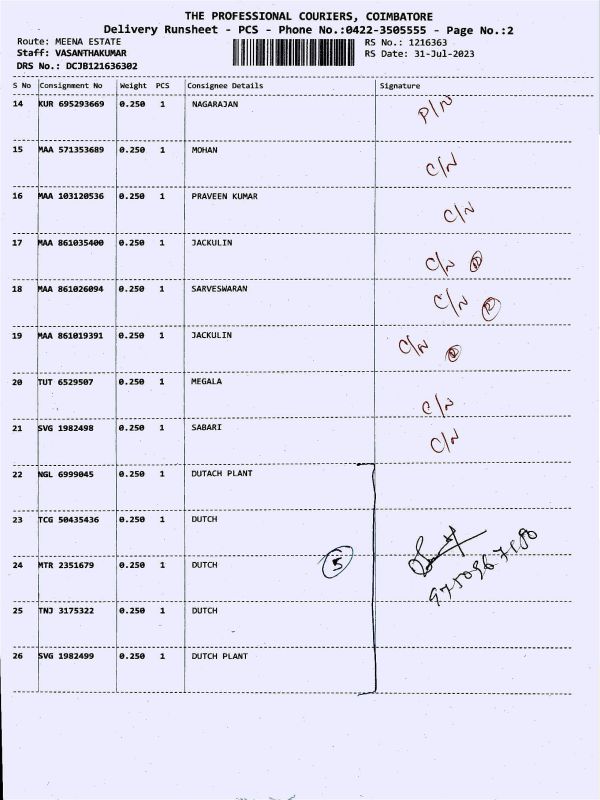 THE PROFESSIONAL COURIERS, COIMBATORE
Delivery Runsheet - PCS - Phone No.:0422-3505555 - Page No.:2
Route: MEENA ESTATE RS No.: 1216363
Staff: VASANTHAKUMAR RS Date: 31-Jul-2023
DRS No.: DCJB121636302
S No Consignment No Weight PCS Consignee Details Signature
14 KUR 695293669 0.250 1 NAGARAJAN P/N
15 MAA 571353689 0.250 1 MOHAN C/N
16 MAA 103120536 0.250 1 PRAVEEN KUMAR C/N
17 MAA 861035400 0.250 1 JACKULIN C/N
18 MAA 861026094 0.250 1 SARVESWARAN C/N
19 MAA 861019391 0.250 1 JACKULIN C/N
20 TUT 6529507 0.250 1 MEGALA C/N
21 SVG 1982498 0.250 1 SABARI C/N
22 NGL 6999045 0.250 1 DUTACH PLANT
23 TCG 50435436 0.250 1 DUTCH
24 MTR 2351679 0.250 1 DUTCH 5
25 TNJ 3175322 0.250 1 DUTCH
26 SVG 1982499 0.250 1 DUTCH PLANT